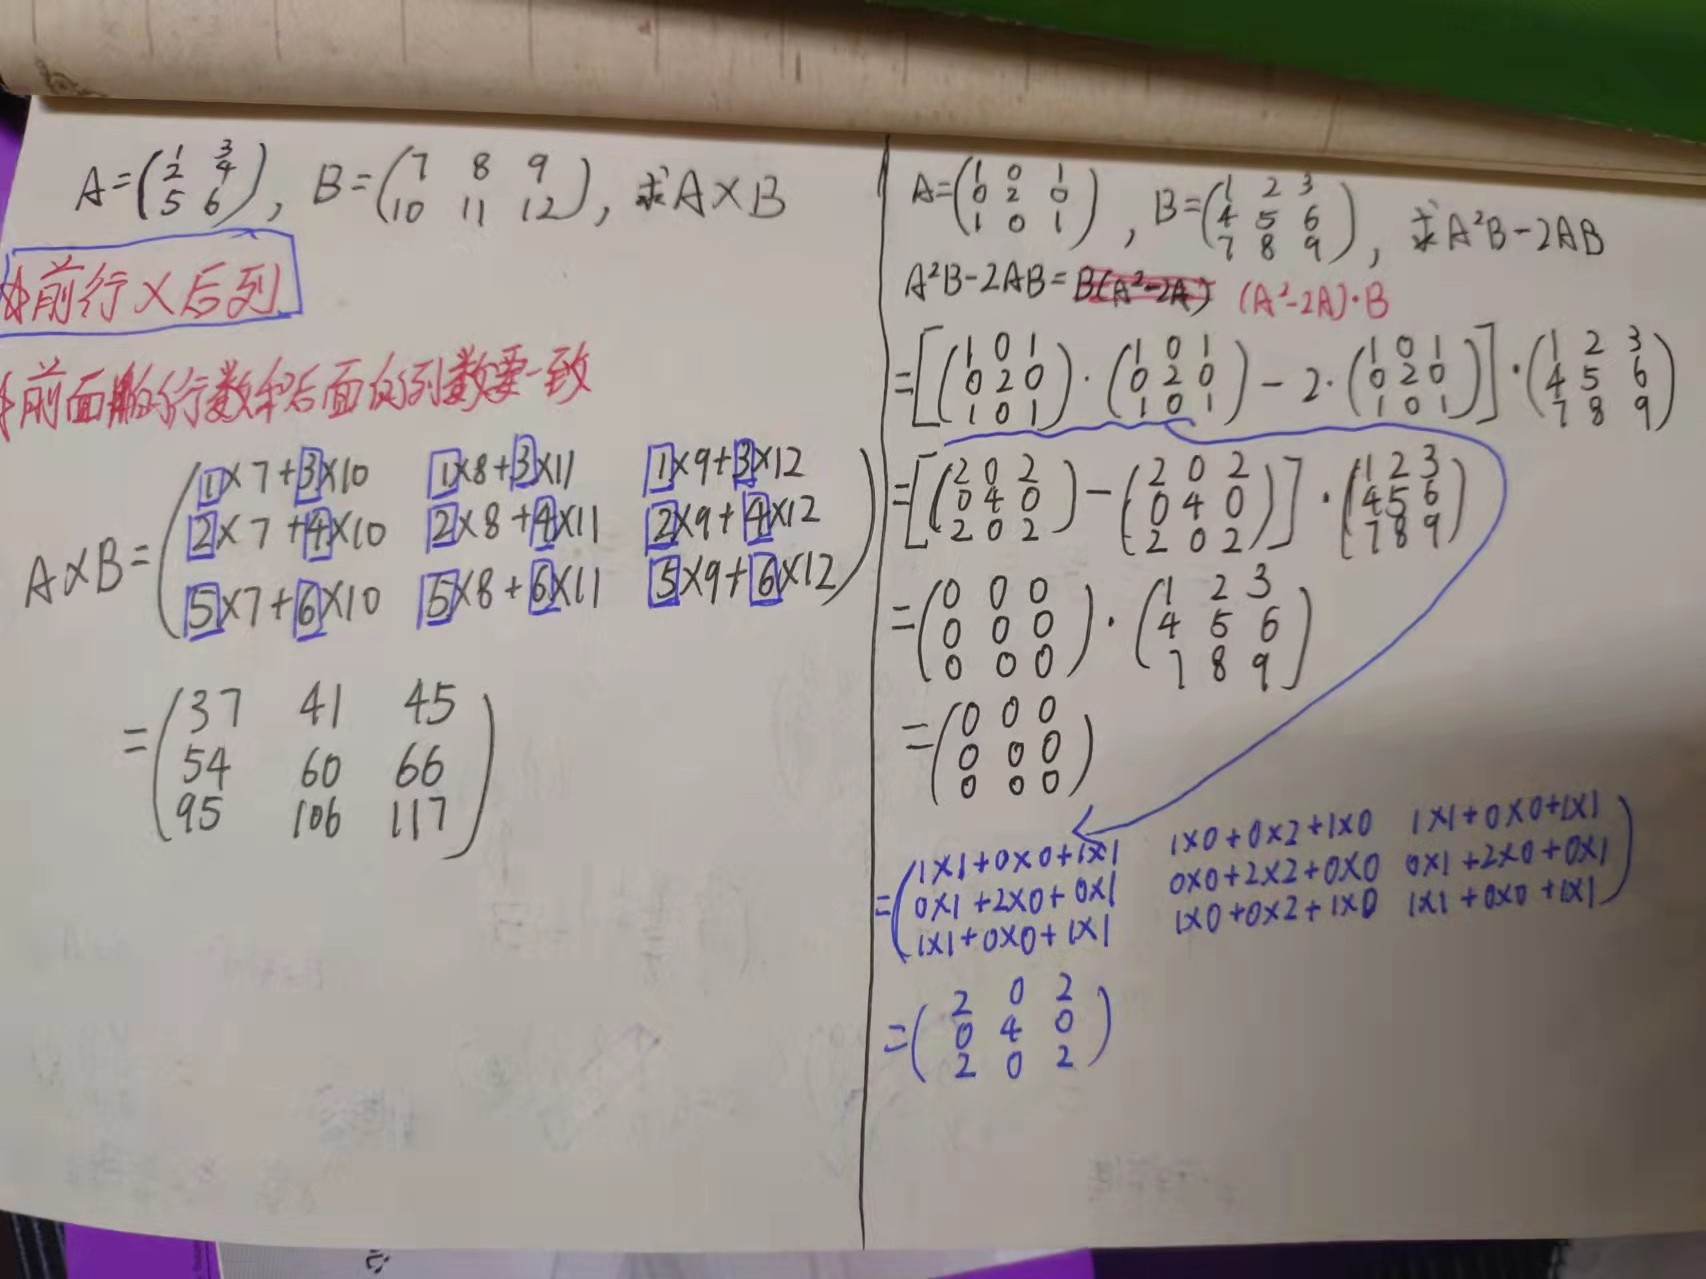 A=(1 3
2 4
5 6), B=(7 8 9
10 11 12), 求A×B
☆前行×后列
☆前面的行数和后面的列数要一致
A×B=(1×7+3×10 1×8+3×11 1×9+3×12
2×7+4×10 2×8+4×11 2×9+4×12
5×7+6×10 5×8+6×11 5×9+6×12)
=(37 41 45
54 60 66
95 106 117)
A=(1 0 1
0 2 0
1 0 1), B=(1 2 3
4 5 6
7 8 9), 求A²B-2AB
A²B-2AB=B(A²-2A) (A²-2A)·B
=[(1 0 1
0 2 0
1 0 1)·(1 0 1
0 2 0
1 0 1)-2·(1 0 1
0 2 0
1 0 1)]·(1 2 3
4 5 6
7 8 9)
=[(2 0 2
0 4 0
2 0 2)-(2 0 2
0 4 0
2 0 2)]·(1 2 3
4 5 6
7 8 9)
=(0 0 0
0 0 0
0 0 0)·(1 2 3
4 5 6
7 8 9)
=(0 0 0
0 0 0
0 0 0)
=(1×1+0×0+1×1 1×0+0×2+1×0 1×1+0×0+1×1
0×1+2×0+0×1 0×0+2×2+0×0 0×1+2×0+0×1
1×1+0×0+1×1 1×0+0×2+1×0 1×1+0×0+1×1)
=(2 0 2
0 4 0
2 0 2)